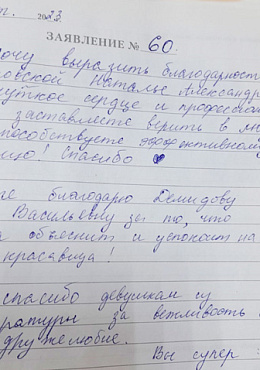 т. 2023
ЗАЯВЛЕНИЕ № 60.
хочу выразить благодарност
овской Наталье Александр
чуткое сердце и професси
заставляете верить в
пособствуете эффективному
ию! Спасибо
же благодарю Демидову
Васильевну за то, что
объяснит и успокоит на
красавица!
спасибо девушкам из
ратуры за вежливость
дружелюбие.
Вы супер